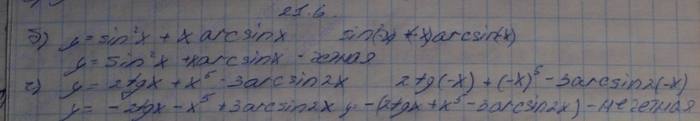 21.6.
б) y = sin²x + x arcsinx sin(-x) + (-x) arcsin(-x)
y = sin²x + x arcsinx - четная
г) y = 2tgx + x⁵ - 3arcsin2x 2tg(-x) + (-x)⁵ - 3arcsin2(-x)
y = -2tgx - x⁵ + 3arcsin2x y = -(2tgx + x⁵ - 3arcsin2x) - нечетная